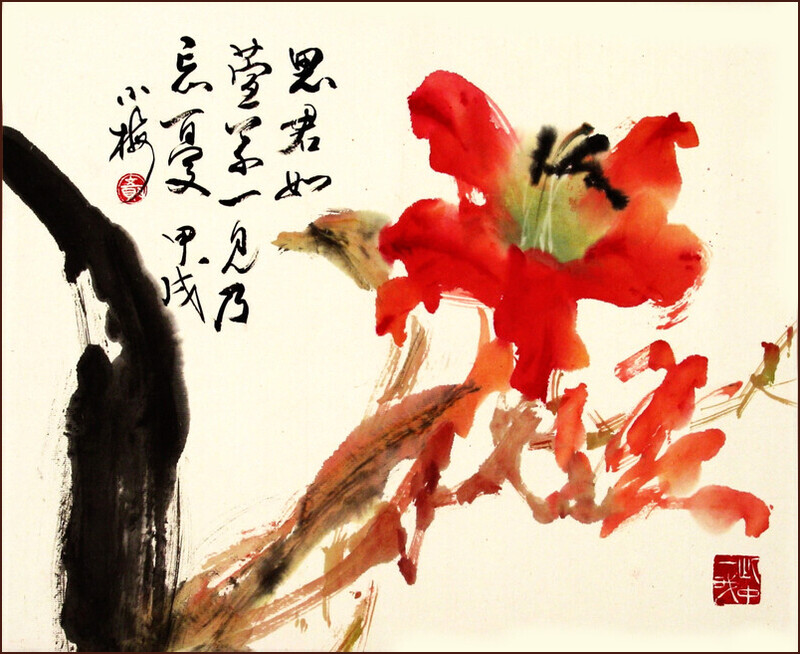 思君如
萱草一見乃
忘憂 甲戌
小梅